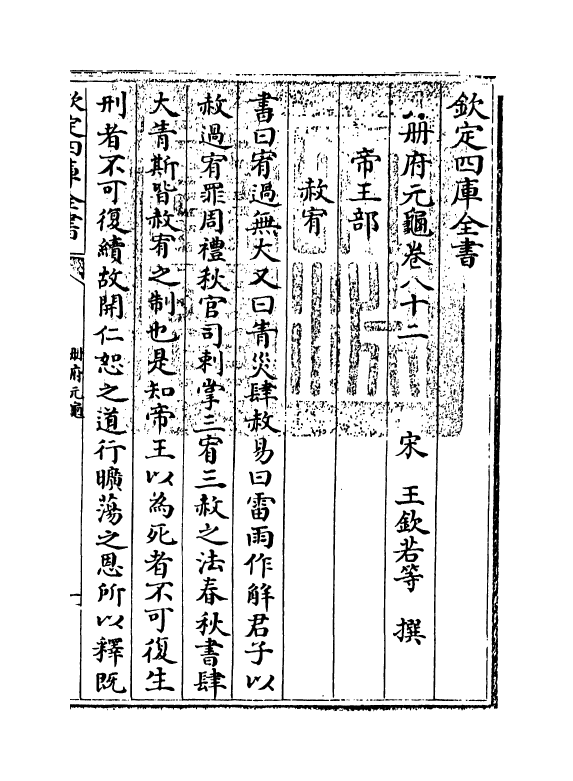 欽定四庫全書
册府元龜卷八十二
宋 王欽若等 撰
帝王部
赦宥
書曰宥過無大又曰眚災肆赦易曰雷雨作解君子以
赦過宥罪周禮秋官司刺掌三宥三赦之法春秋書肆
大眚斯皆赦宥之制也是知帝王以為死者不可復生
刑者不可復續故開仁恕之道行曠蕩之恩所以釋既
欽定四庫全書
册府元龜
一